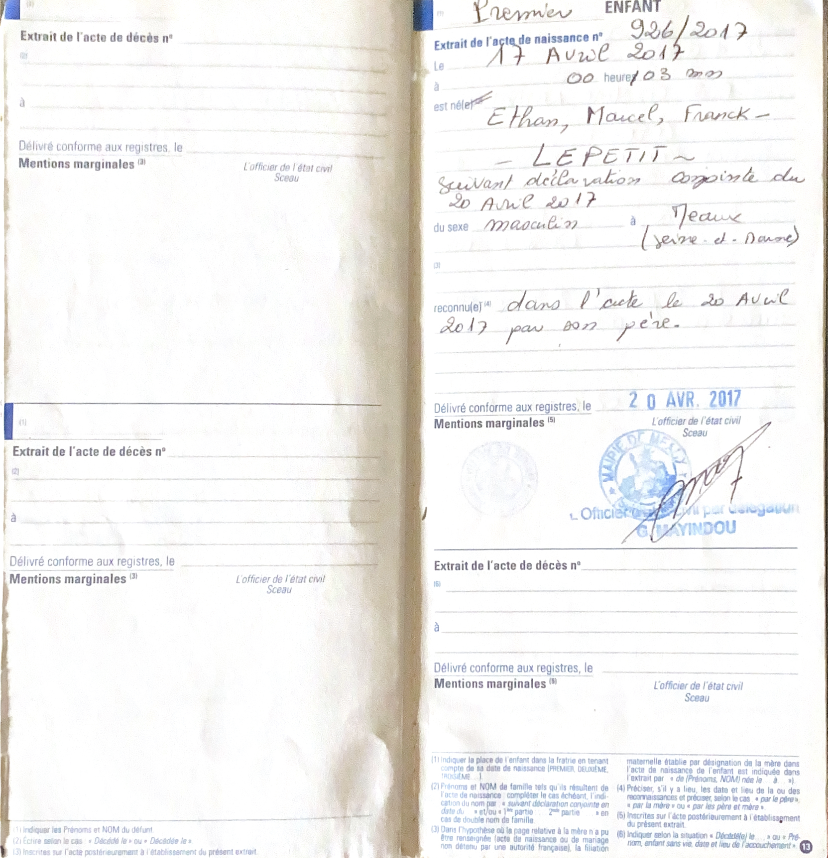 (1)
Extrait de l'acte de décès n°
(2)
à
Délivré conforme aux registres, le
Mentions marginales (3)
L'officier de l'état civil
Sceau
(1)
Extrait de l'acte de décès n°
(2)
à
Délivré conforme aux registres, le
Mentions marginales (3)
L'officier de l'état civil
Sceau
(1) Indiquer les Prénoms et NOM du défunt.
(2) Écrire selon le cas « Décédé le » ou « Décédée le »
(3) Inscrites sur l'acte postérieurement à l'établissement du présent extrait.
(1) Premier ENFANT
Extrait de l'acte de naissance n° 926/2017
Le 17 Avril 2017
à 00 heure 03 mn
est né(e)
Ethan, Marcel, Franck -
- LEPETIT ~
Suivant déclaration conjointe du
20 Avril 2017
du sexe masculin à Meaux
(Seine-et-Marne)
(3)
reconnu(e) (4) dans l'acte le 20 Avril
2017 par son père.
Délivré conforme aux registres, le 20 AVR. 2017
Mentions marginales (5)
L'officier de l'état civil
Sceau
MAIRIE DE
L'Officier par délégation
G. MAYINDOU
Extrait de l'acte de décès n°
(6)
à
Délivré conforme aux registres, le
Mentions marginales (5)
L'officier de l'état civil
Sceau
(1) Indiquer la place de l'enfant dans la fratrie en tenant
compte de sa date de naissance (PREMIER, DEUXIÈME,
TROISIÈME ...).
(2) Prénoms et NOM de famille tels qu'ils résultent de
l'acte de naissance : compléter le cas échéant, l'indi-
cation du nom par « suivant déclaration conjointe en
date du » et/ou « 1re partie 2nde partie » en
cas de double nom de famille.
(3) Dans l'hypothèse où la page relative à la mère n'a pu
être renseignée (acte de naissance ou de mariage
non détenu par une autorité française), la filiation
maternelle établie par désignation de la mère dans
l'acte de naissance de l'enfant est indiquée dans
l'extrait par « de (Prénoms, NOM) née le à ».
(4) Préciser, s'il y a lieu, les date et lieu de la ou des
reconnaissances et préciser, selon le cas « par le père »,
« par la mère » ou « par les père et mère ».
(5) Inscrites sur l'acte postérieurement à l'établissement
du présent extrait.
(6) Indiquer selon la situation « Décédé(e) le ... » ou « Pré-
nom, enfant sans vie, date et lieu de l'accouchement ».
13